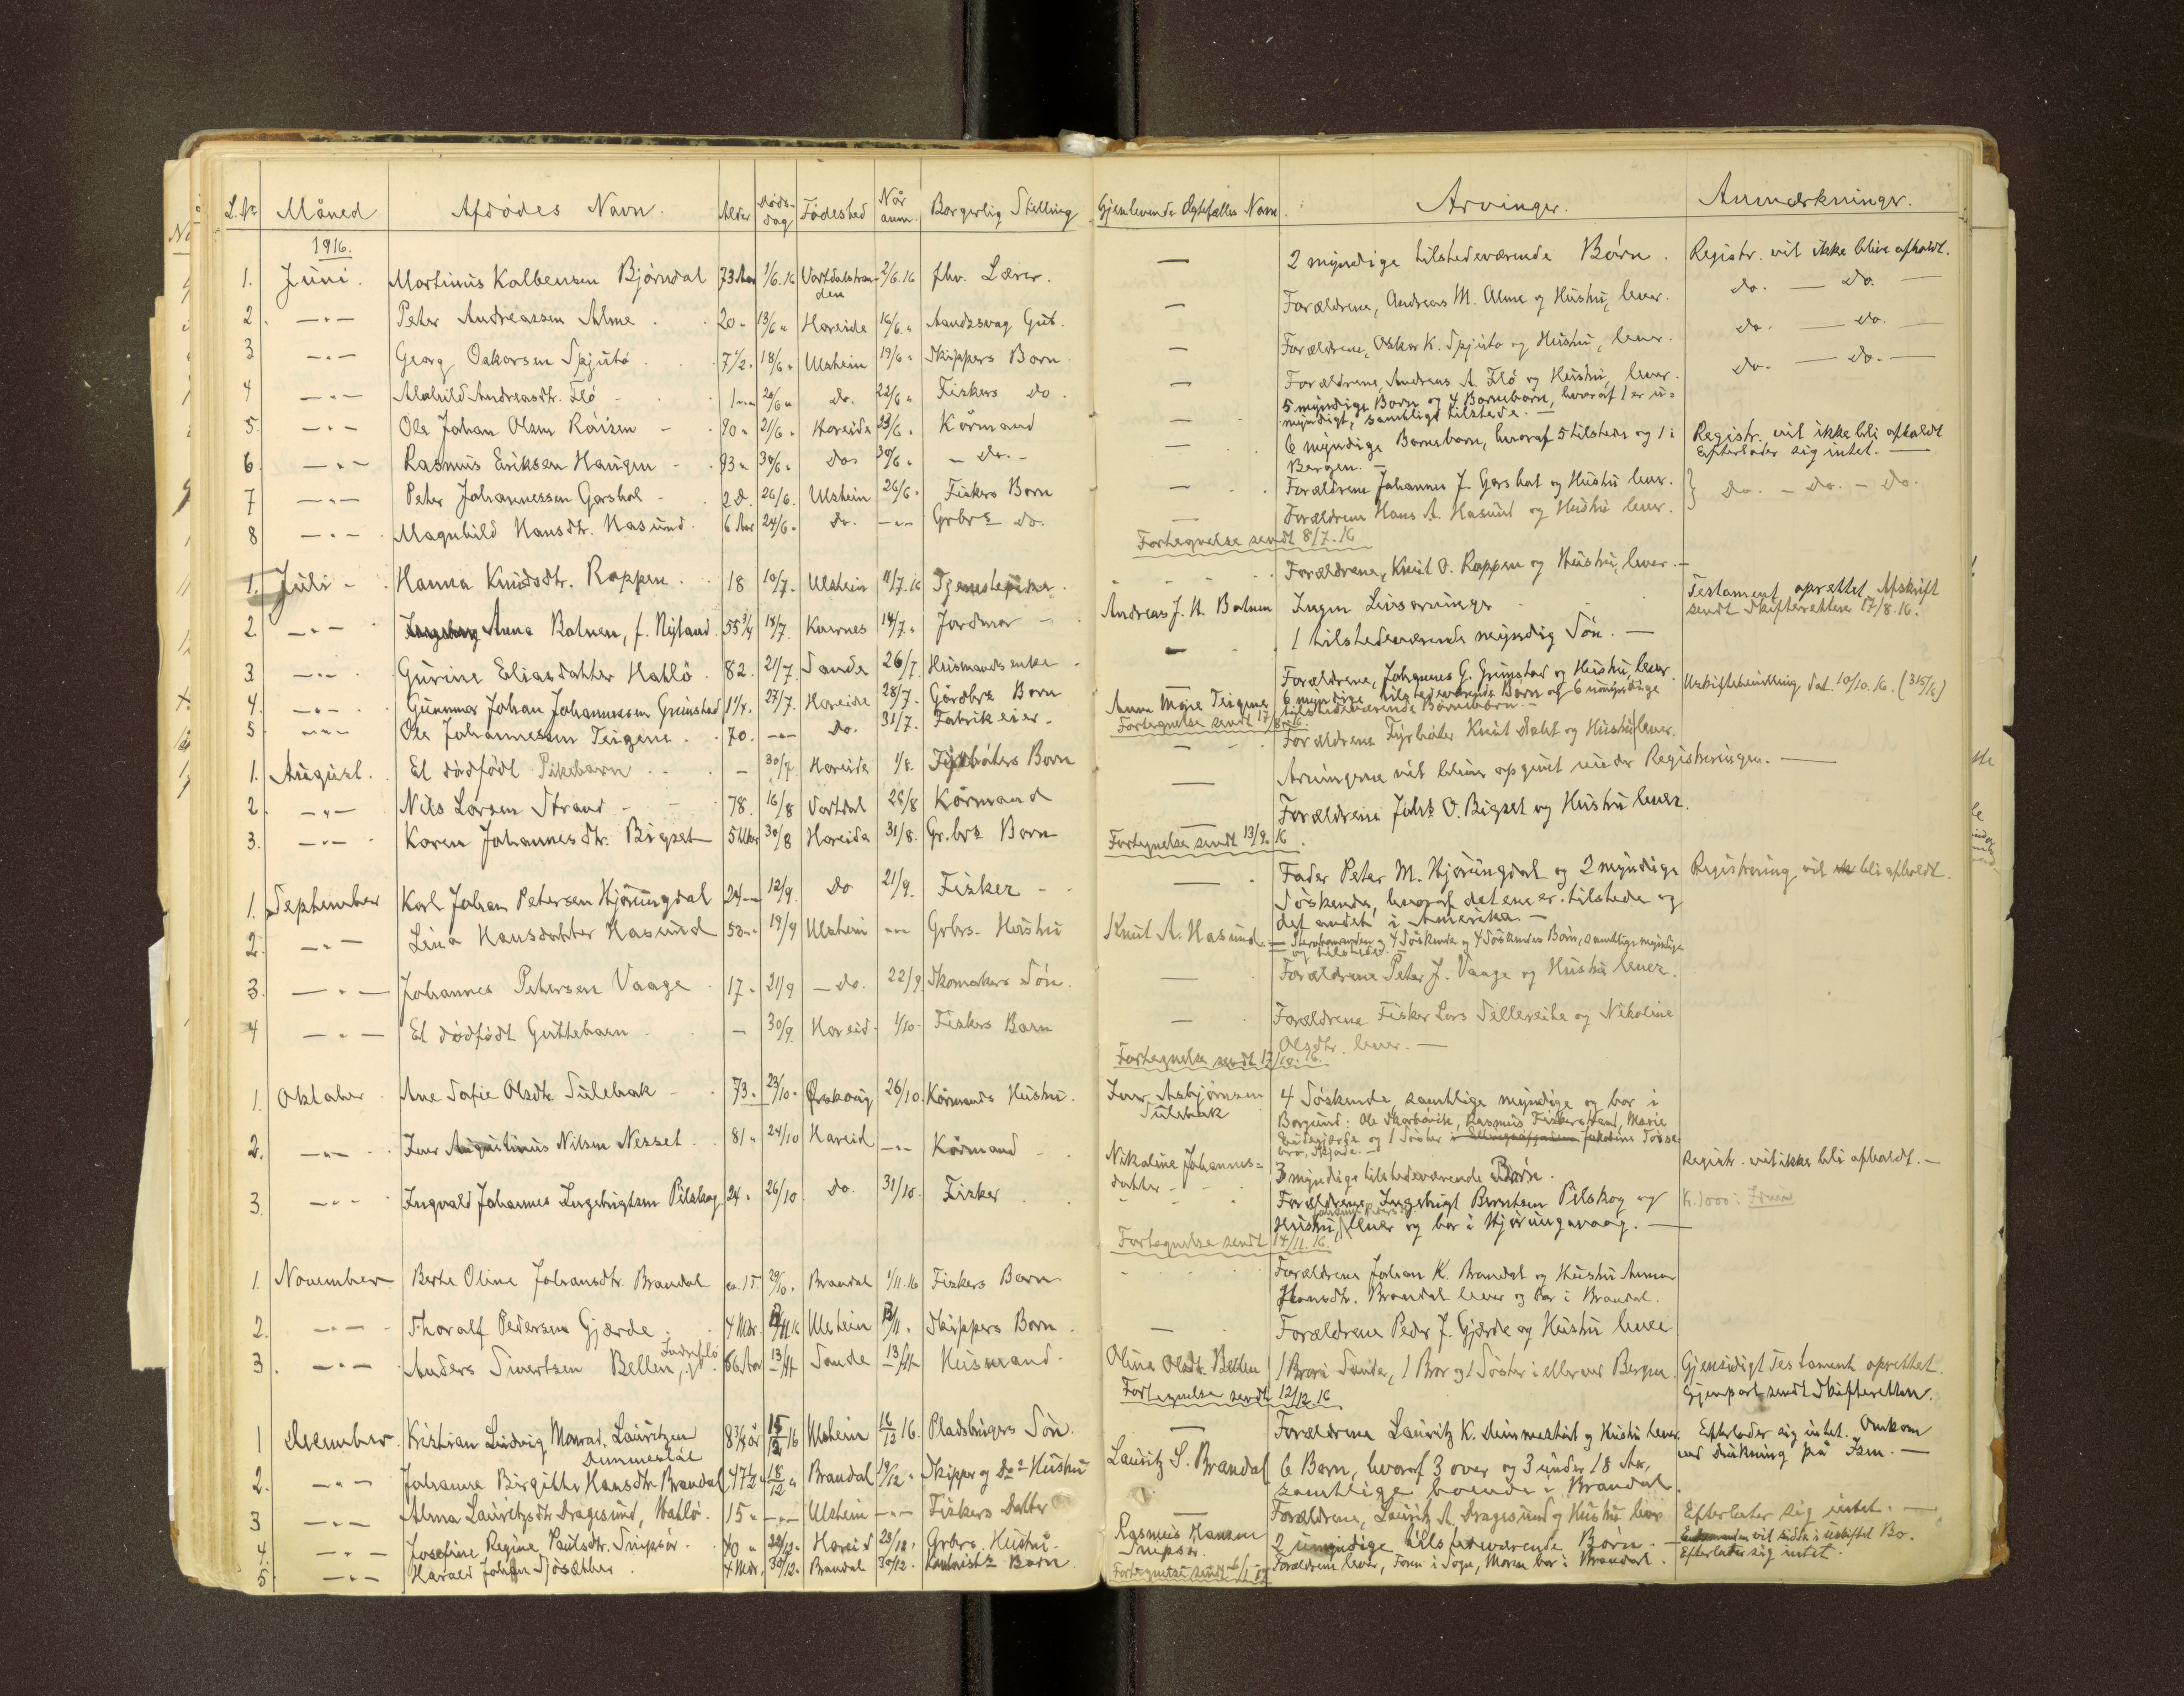 L. No Måned Afdödes Navn. Alder Döds-dag Födested Når anm. Borgerlig Stilling Gjenlevende Ægtefælles Navn. Arvinger. Anmærkninger.
1916.
1. Juni. Martinus Kolbensen Bjørndal 73 Aar 1/6.16 Vartdalstranden 2/6.16 fhv. Lærer. — 2 myndige tilstedeværende Børn. Registr. vil ikke blive afholdt.
2. —"— Peter Andreassen Alme 20 " 13/6 " Hareide 16/6. " Aandssvag Gut. — Forældrene, Andreas M. Alme og Hustru, lever. do. — do. —
3 —"— Georg Oskarsen Spjutø 7 1/2 " 18/6 " Ulstein 19/6 " Skippers Barn — Forældrene, Oskar K. Spjutø og Hustru, lever. do. — do. —
4 —"— Alvhild Andreasdtr. Flö 1 " 20/6 " do. 22/6 " Fiskers do. — Forældrene, Andreas A. Flö og Hustru, lever. do. — do. —
5. —"— Ole Johan Olsen Röisen 90 " 21/6 " Hareide 23/6 " Kårmand — 5 myndige Børn og 4 Børnebørn, hvoraf 1 er u=
myndigt, samtlige tilstede. —
6. —"— Rasmus Eriksen Haugen 93 " 30/6 " do. 30/6 " — do. — — 6 myndige Børnebørn, hvoraf 5 tilstede og 1 i Registr. vil ikke bli afholdt
Bergen. — Efterlader sig intet. —
7 —"— Peter Johannessen Garshol 2 D. 26/6. Ulstein 26/6 " Fiskers Barn — Forældrene Johannes J. Garshol og Hustru lever. } do. — do. — do.
8 —"— Magnhild Hansdtr. Hasund 6 Aar 24/6 " do. —"— Grbrs do. — Forældrene Hans A. Hasund og Hustru lever.
Fortegnelse sendt 8/7.16
1. Juli Hanna Knudsdtr. Rappen 18 10/7. Ulstein 11/7.16 Tjenestepike. Forældrene, Knut O. Rappen og Hustru, lever. —
2. —"— Anna Botnen, f. Nyland 55 3/4 18/7. 14/7. " Jordmor Andreas J. H. Botnen Ingen Livsarvinger Testament oprettet. Afskrift
sendt Skifteretten 17/8.16.
3 —"— Gurine Eliasdatter Hahlö 82. 21/7. Sande 26/7. Husmands enke — 1 tilstedeværende myndig Sön. —
4. —"— Gunnnar Johan Johannessen Grimstad 1 1/4. 27/7. Hareide 28/7. Gårdbrs Barn — Forældrene, Johannes G. Grimstad og Hustru, lever.
5 —"— Ole Johannessen Teigene 70. —"— do. 31/7. Fabrikeier. Anna Marie Teigene 6 myndige tilstedeværende Børn og 6 umyndige
tilstedeværende Børnebørn. — Uskiftebevilling dat. 10/10.16. (315/16)
Fortegnelse sendt 17/8.16.
1. August. Et dødfødt Pikebarn — 30/7. Hareide 1/8. Fyrbøters Barn — Forældrene Fyrbøter Knut og Hustru lever.
2. —"— Nils Larsen Strand 78. 16/8 Vartdal 26/8 Kårmand — Arvingerne vil blive opgivet under Registreringen. —
3. —"— Karen Johannesdtr. Bigset 5 Uker 30/8 Hareide 31/8. Gr.brs Barn — Forældrene Johs O. Bigset og Hustru lever.
Fortegnelse sendt 13/9.16.
1. September Karl Johan Petersen Hjörungdal 24 " 12/9. do 21/9. Fisker — Fader Peter M. Hjörungdal og 2 myndige Registrering vil bli afholdt.
Söskende, hvoraf det ene er tilstede og
det andet i Amerika. —
2. —"— Lina Hansdatter Hasund 50 " 19/9 Ulstein —"— Grbrs. Hustru Knut A. Hasund. — 4 Söskende og 4 Söskendes Børn, samtlige myndige
og tilstede. —
3. —"— Johannes Petersen Vaage 17 " 21/9 — do. 22/9 Skomakers Sön. — Forældrene Peter J. Vaage og Hustru lever.
4 —"— Et dødfødt Guttebarn — 30/9. Hareid 1/10. Fiskers Barn — Forældrene Fisker Lars Sellereite og Nikoline
Olsdtr. lever. —
Fortegnelse sendt 17/10.16.
1. Oktober Ane Sofie Olsdtr. Sulebak 73 " 23/10. Ørskoug 26/10. Kårmands Hustru. Iver Asbjørnsen Sulebak 4 Söskende, samtlige myndige og bor i
Borgund: Ole Skarbövik, Rasmus Fiskerstrand, Marie
og 1 Söster
2. —"— Iver Augustinus Nilsen Nesset 81 " 24/10 Hareid —"— Kårmand Nikoline Johannes=datter 3 myndige tilstedeværende Børn. Registr. vil ikke bli afholdt. —
3. —"— Ingvald Johannes Ingebrigtsen Pilskog 24 " 26/10 do. 31/10. Fisker Forældrene, Ingebrigt Berntsen Pilskog og K. 1000:
Hustru, lever og bor i Hjörungavaag. —
Fortegnelse sendt 14/11.16.
1. November Berte Oline Johansdtr. Brandal ca. 15. 29/10. Brandal 1/11.16 Fiskers Barn Forældrene Johan K. Brandal og Hustru Anna
Hansdtr. Brandal lever og bor i Brandal.
2. —"— Thoralf Pedersen Gjærde 4 Mdr. Ulstein Skippers Barn — Forældrene Peder J. Gjærde og Hustru lever
3. —"— Anders Sivertsen Bellen, Indreflö 86 Aar 13/11 Sande 13/11 Husmand Olina Olsdtr. Bellen 1 Bror i Sande, 1 Bror og 1 Söster i eller ved Bergen. Gjensidigt Testament oprettet.
Fortegnelse sendt 12/12.16 Gjenpart sendt Skifteretten.
1 December. Kristian Ludvig Monrad Lauritzen Dimmestöl 8 3/4 år 15/12 16 Ulstein 16/12 16. Pladsbrugers Sön. — Forældrene Lauritz K. Dimmestöl og Hustru lever. Efterlader sig intet. Omkom
ved drukning på Isen. —
2. —"— Johanna Birgitte Hansdtr. Brandal 47 1/2 18/12 " Brandal 19/12 " Skipper og Do= Hustru Lauritz S. Brandal 6 Børn, hvoraf 3 over og 3 under 18 Aar,
samtlige boende i Brandal.
3 —"— Alma Lauritzdtr. Dragesund, Hahlö. 15 " —"— Ulstein —"— Fiskers Datter Forældrene, Lauritz A. Dragesund og Hustru lever Efterlater sig intet. —
4. —"— Josefine Regine Paulsdtr. Snipsör 40 " 22/12. Hareid 23/12. Grbrs. Hustru. Rasmus Hansen Snipsör. 2 umyndige tilstedeværende Børn. — vil sidde i uskiftet Bo.
5. —"— Harald Johan Sjösæther 4 Mdr. 30/12. Brandal 30/12. Barn Forældrene lever, Faren i Sogn, Moren bor i Brandal. Efterlater sig intet.
Fortegnelse sendt